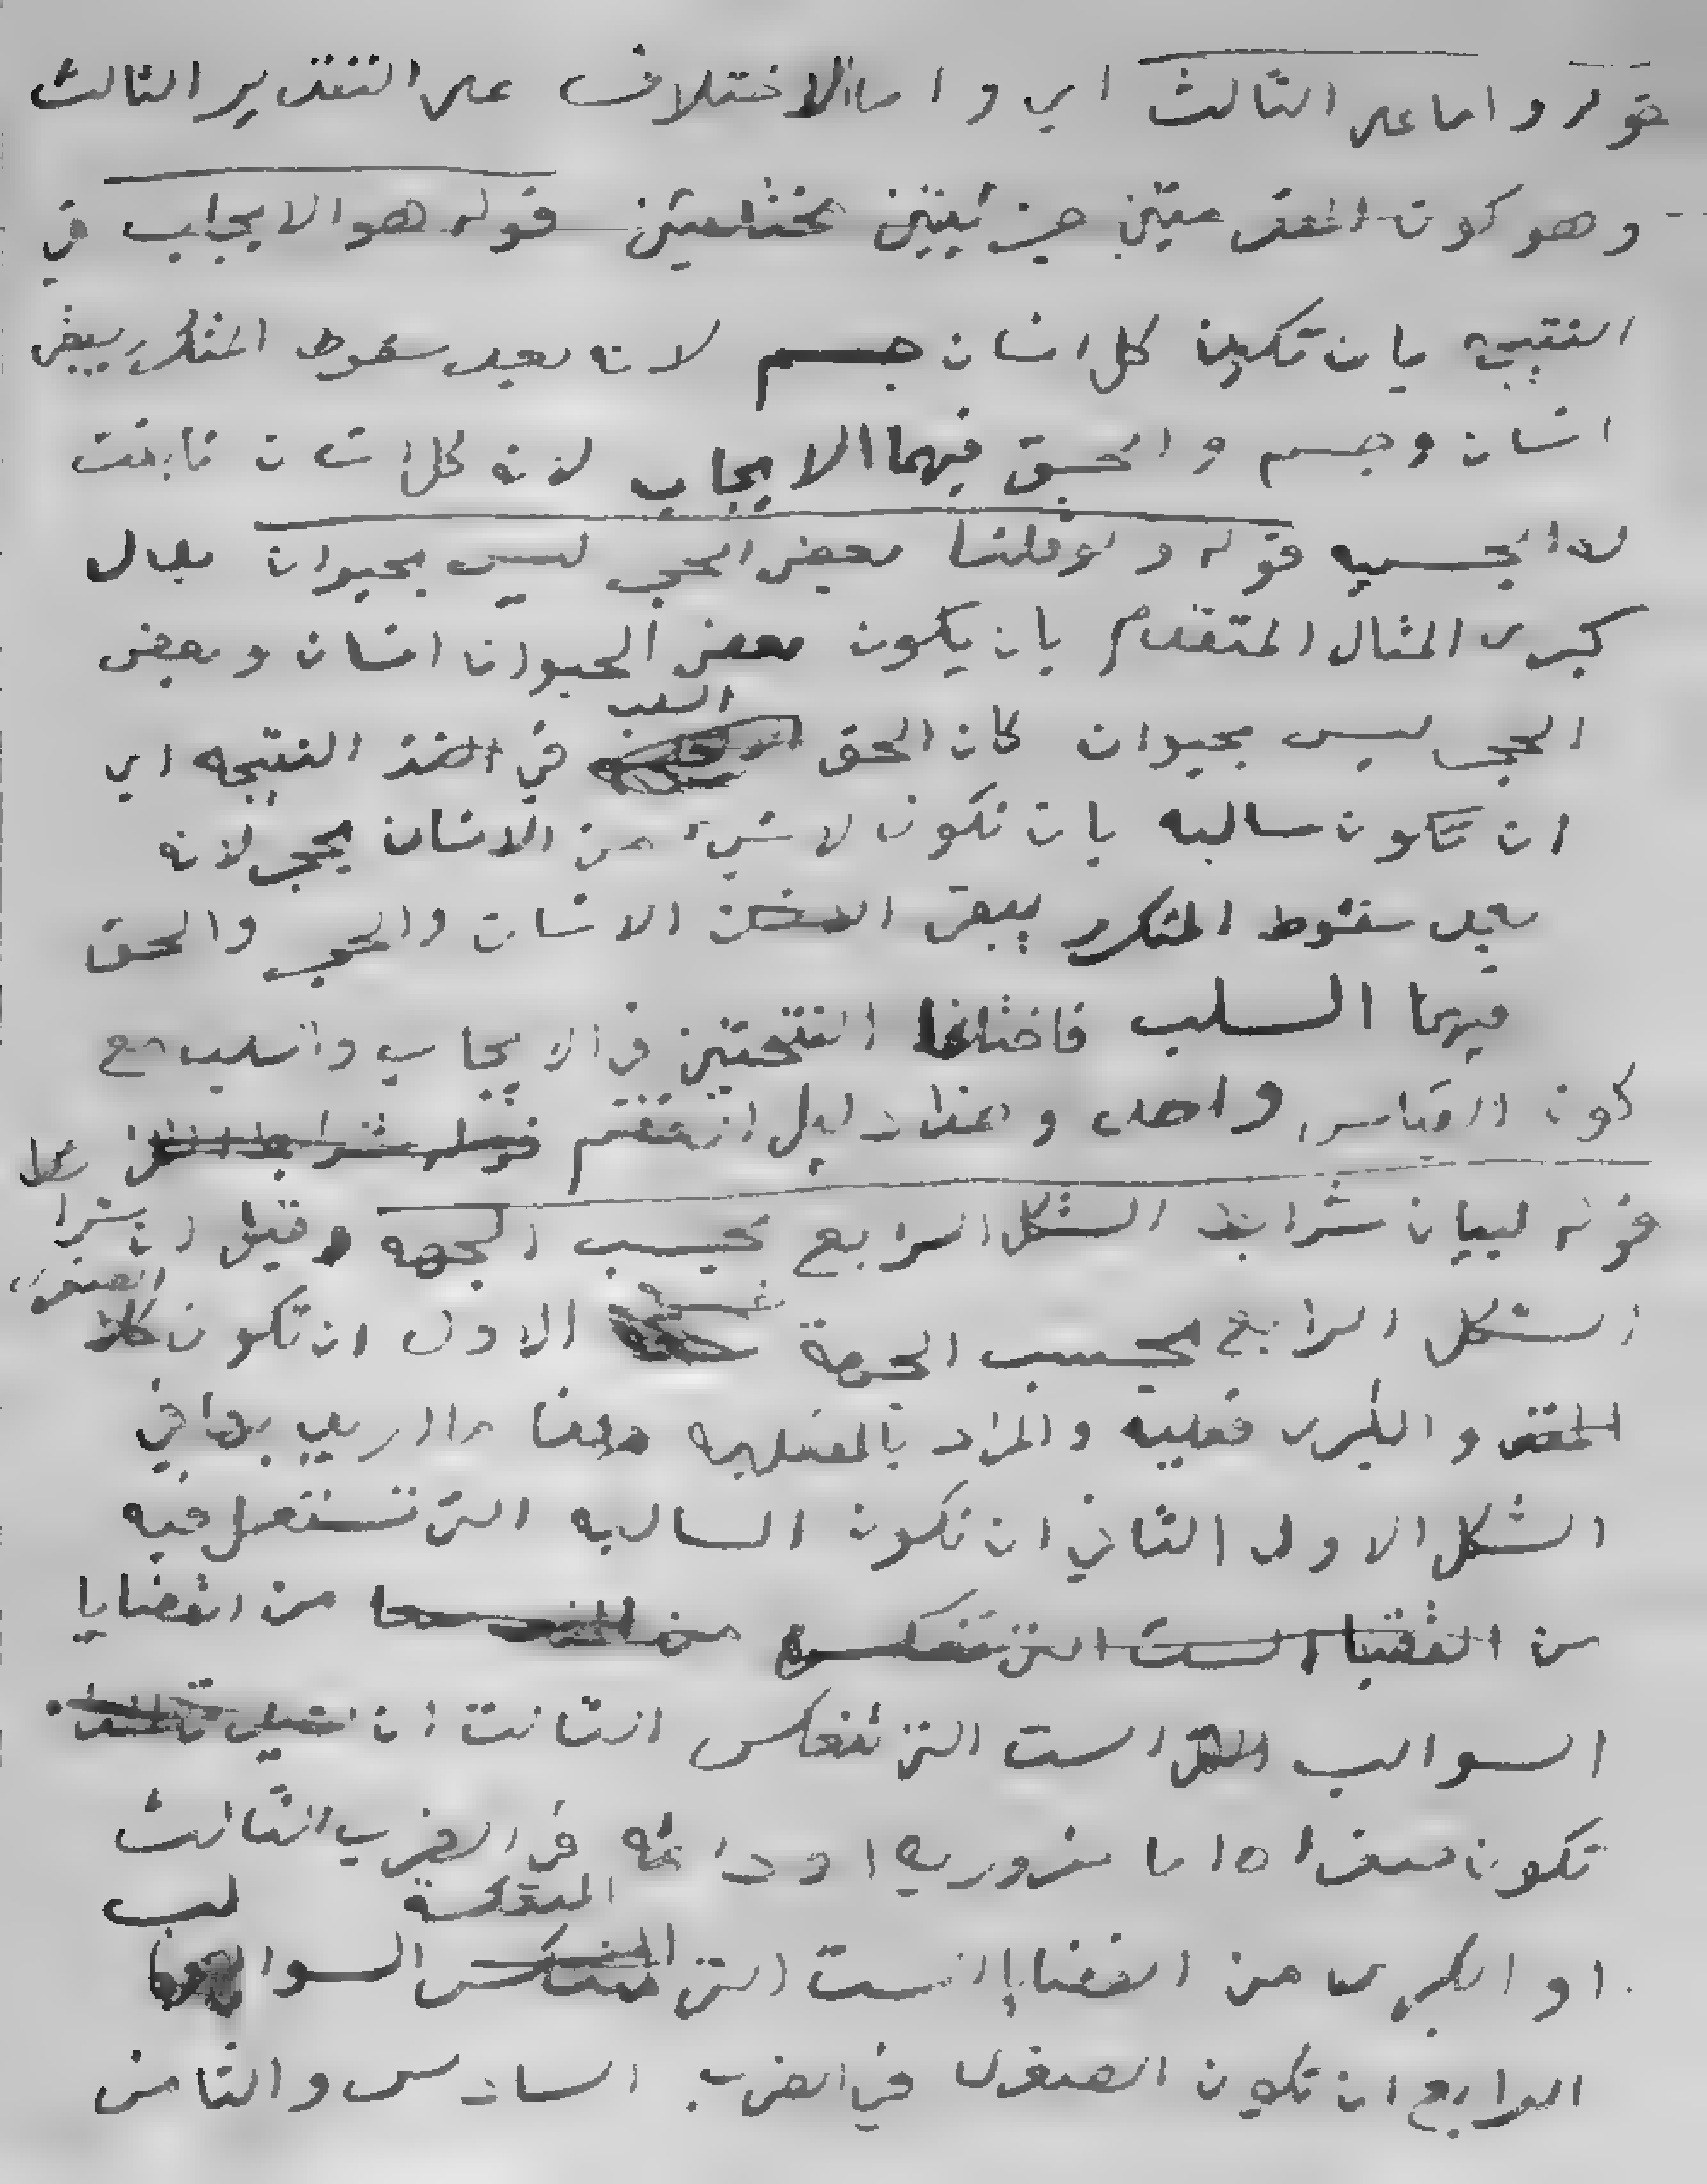 قوله واما على الثالث اي واما الاختلاف على التقدير الثالث
وهو كون المقدمتين جزئيتين مختلفتين قوله هو الايجاب في
النتيجه بان تكون كل انسان جسم لانه بعد سقوط المتكرر يبقى
انسان وجسم والحق فيهما الايجاب لانه كل انسان ثابت
له الجسميه قوله ولو قلنا بعض الحجر ليس بحيوان بدل
كبرى المثال المتقدم بان يكون بعض الحيوان انسان وبعض
الحجر ليس بحيوان كان الحق السلب في اخذ النتيجه اي
ان تكون سالبه بان تكون لا شيء من الانسان بحجر لانه
بعد سقوط المتكرر يبقى الانسان والحجر والحق
فيهما السلب فاختلفا النتيجتين في الايجاب والسلب مع
كون القياس واحد وهذا دليل العقم
قوله لبيان شرايط الشكل الرابع بحسب الجهه وقيل ان شرايط
الشكل الرابع بحسب الجهة خمسة الاول ان تكون الصغرى
والكبرى فعليه والمراد بالفعليه هنا ما اريد بها في
الشكل الاول الثاني ان تكون السالبه التي تستعمل فيه
من القضايا
السوالب الست التي تنعكس الثالث ان
تكون صغراه اما ضروريه او دائمه في الضرب الثالث
او الكبرى من القضايا الست المنعكسة السوالب
الرابع ان تكون الصغرى في الضرب السادس والثامن